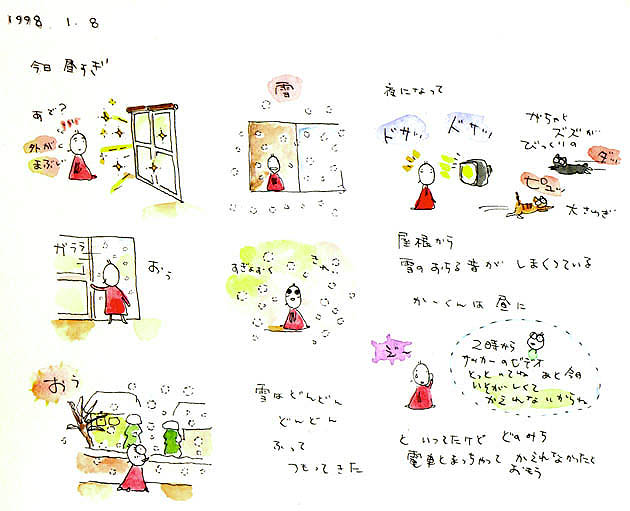 1998. 1. 8
今日 昼すぎ
あれ?
外が
まぶしい
ガララ
おぅ
おぅ
雪
すぎょおく
雪はどんどん
どんどん
ふって
つもってきた
夜になって
ドサッ
ドサッ
がちゃと
ズズが
びっくりの
ダッ
ピュッ
大さわぎ
屋根から
雪のおちる音が しまくっている
かーくんは 昼に
2時から
サッカーのビデオ
とっといてね あと今日
いそがしくて
かえれないからね
と いってたけど どのみち
電車とまっちゃって かえれなかったと
おもう